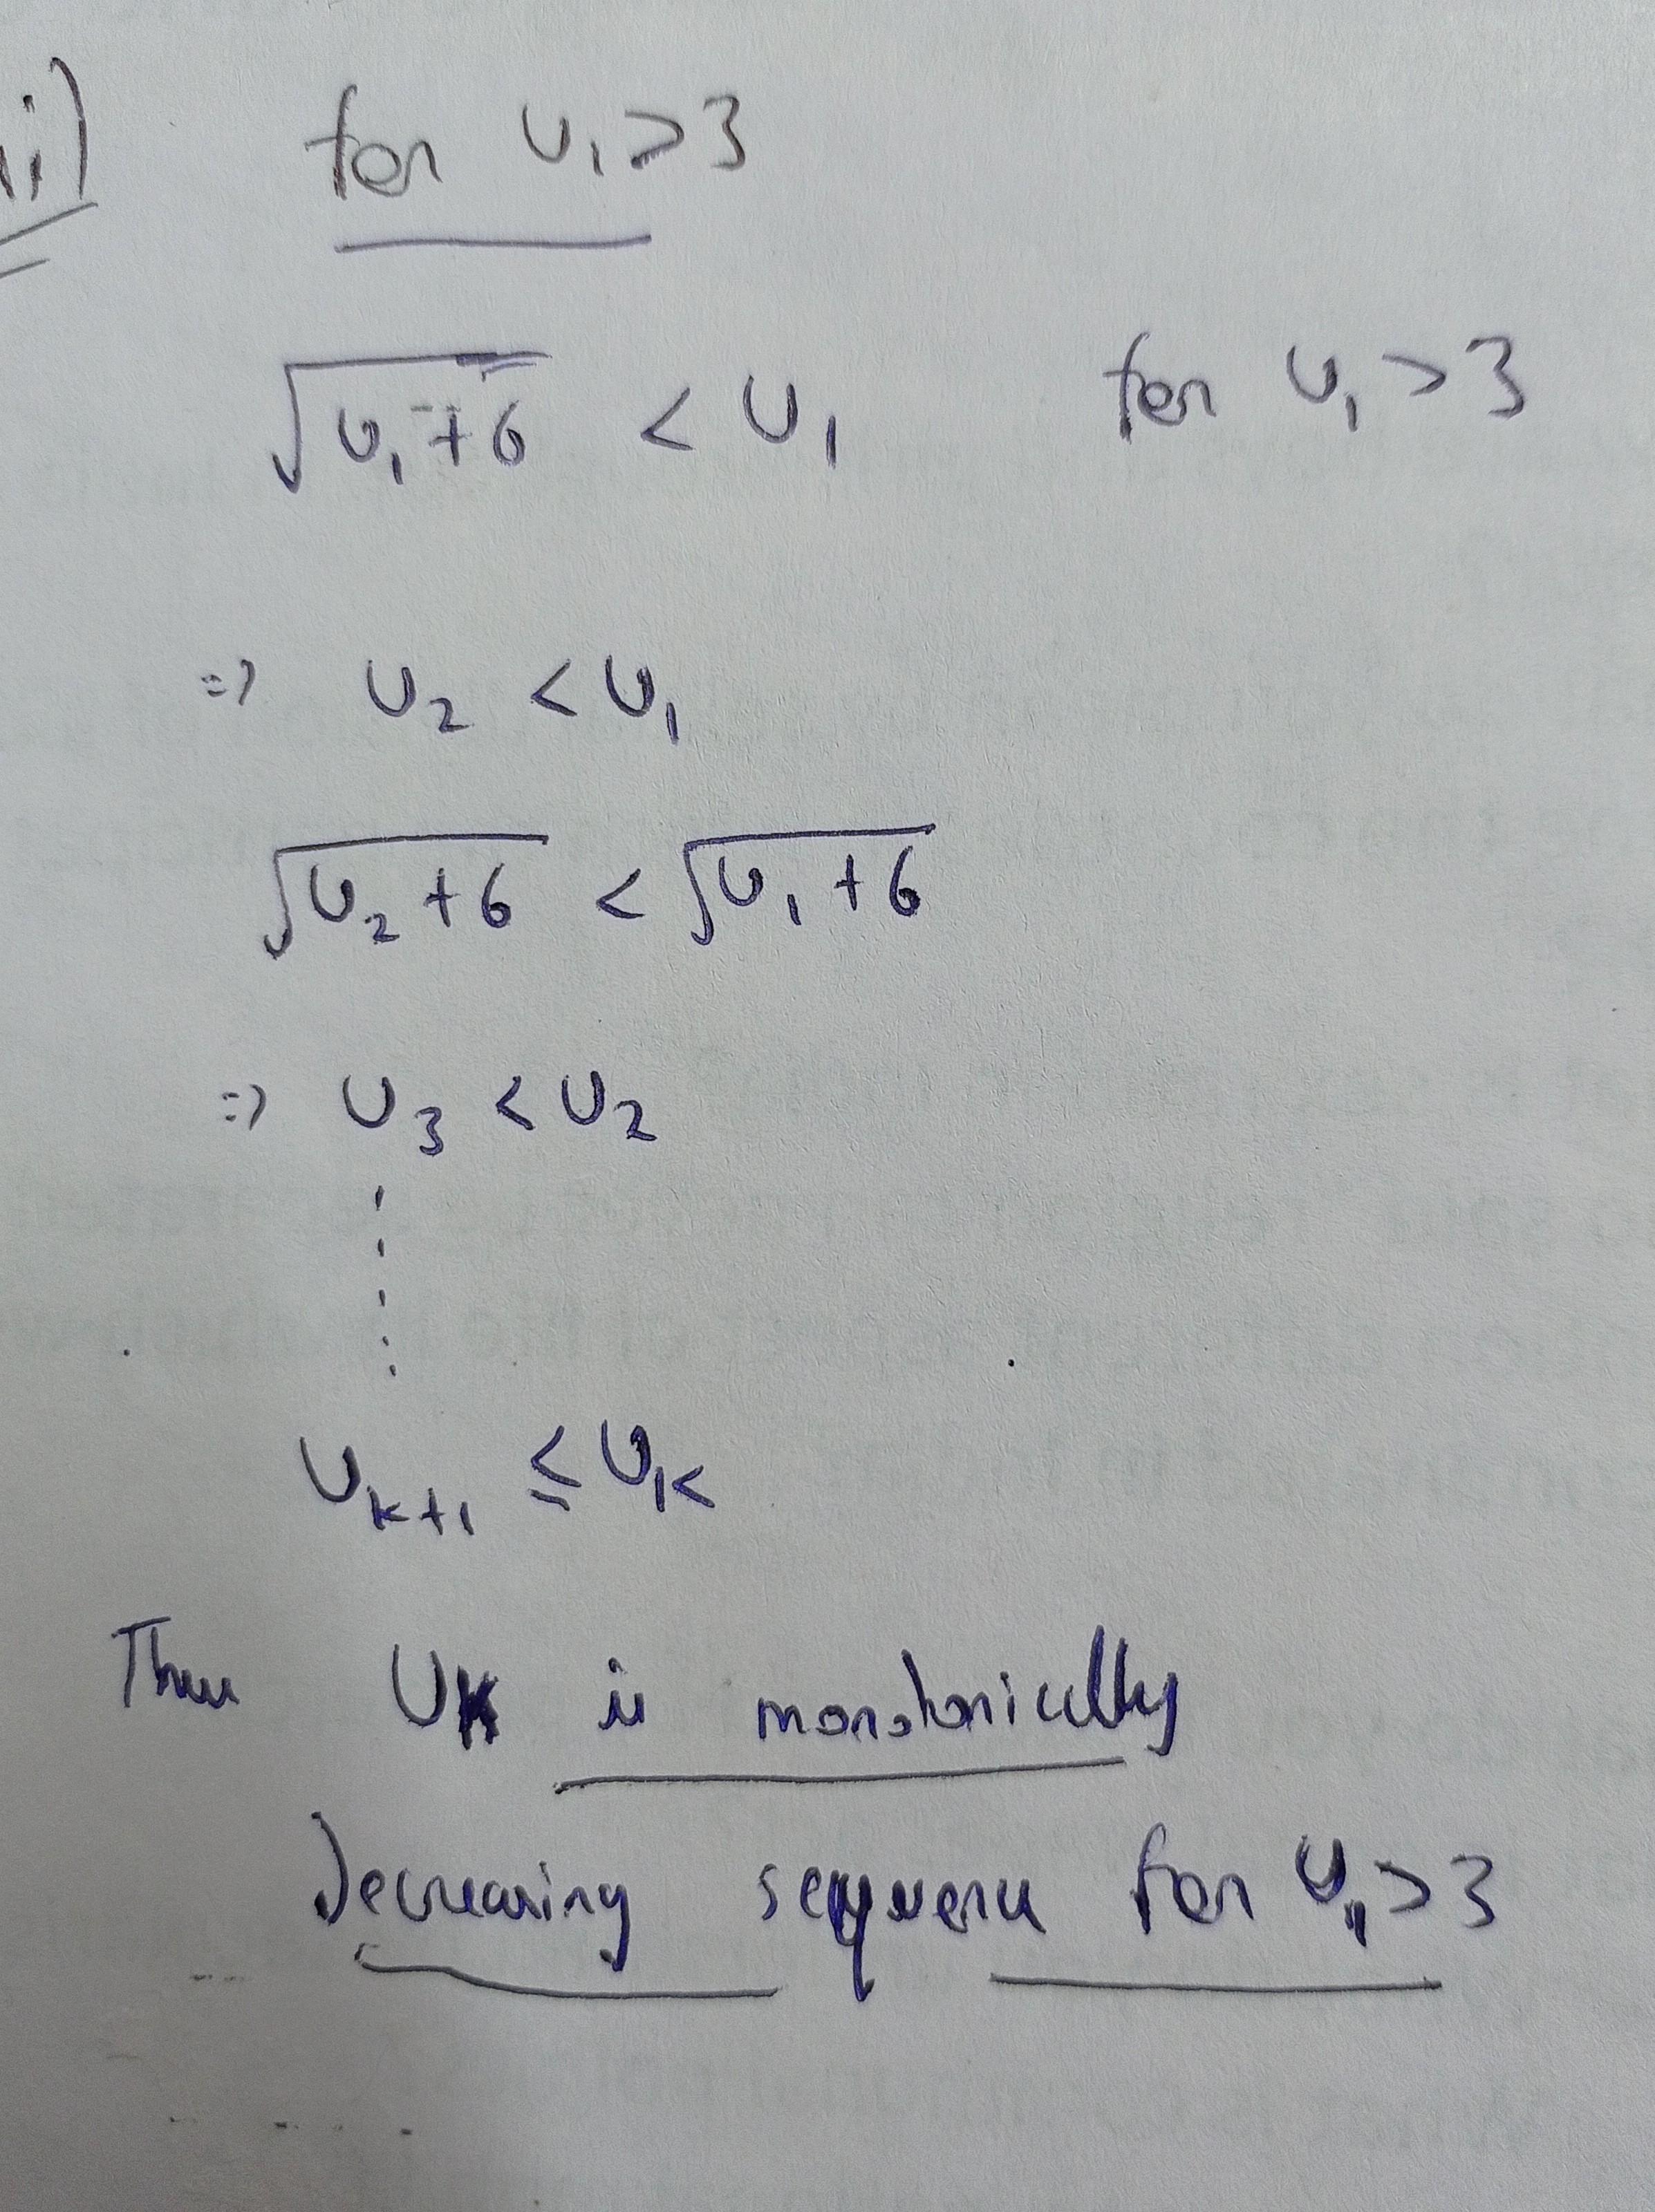 ii) for U₁>3
√(U₁+6) < U₁ for U₁>3
=> U₂ < U₁
√(U₂+6) < √(U₁+6)
=> U₃ < U₂
U_{k+1} ≤ U_k
Then U_k is monotonically
Decreasing sequence for U₁>3